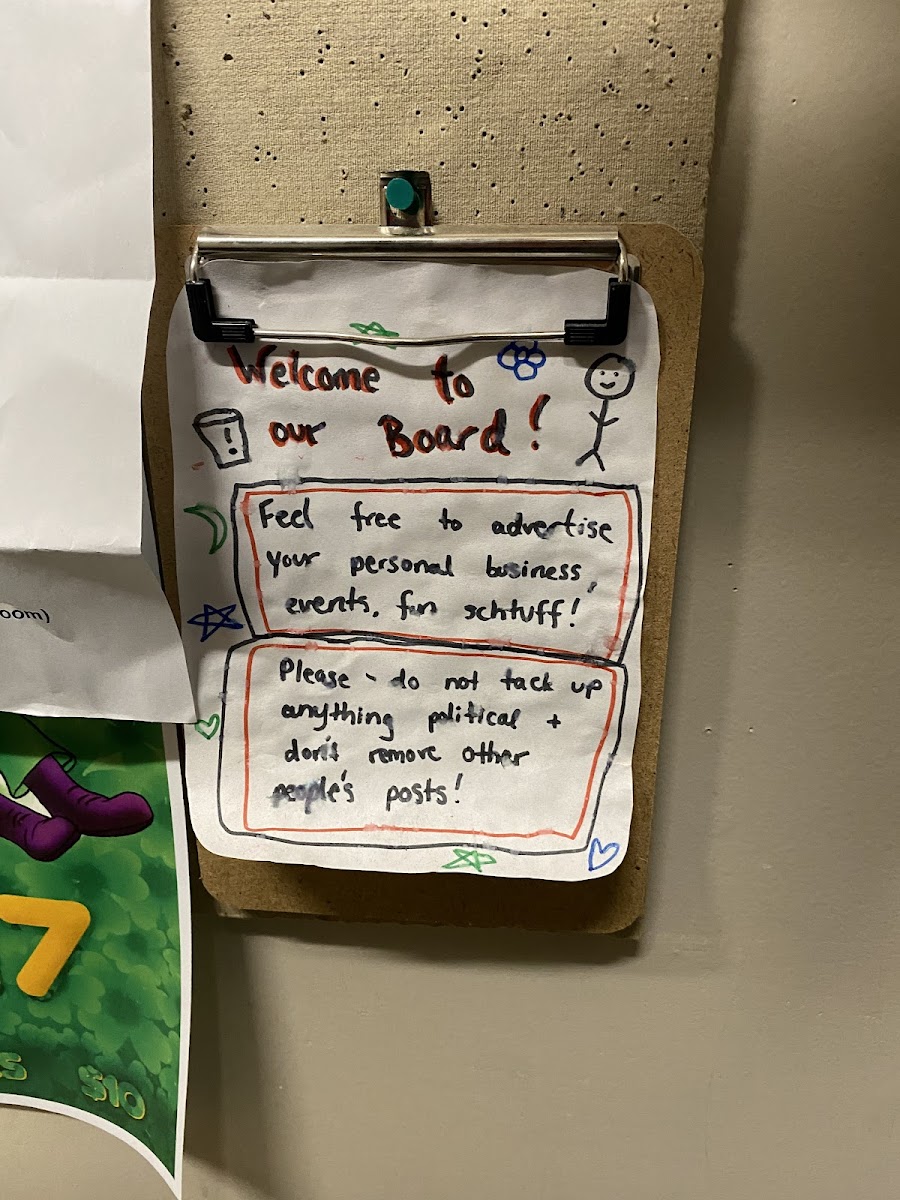 Welcome to
our Board!
!
Feel free to advertise
your personal business,
events, fun schtuff!
Please - do not tack up
anything political +
don't remove other
people's posts!
oom)
7
$10